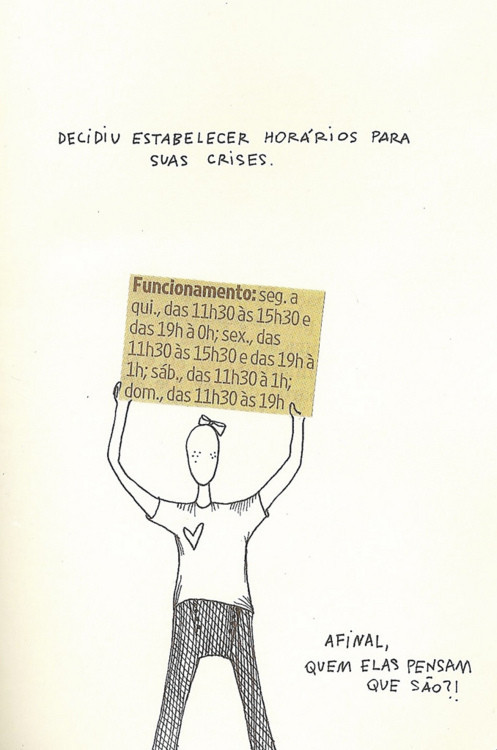 DECIDIU ESTABELECER HORÁRIOS PARA
SUAS CRISES.
Funcionamento: seg. a
qui., das 11h30 às 15h30 e
das 19h à 0h; sex., das
11h30 às 15h30 e das 19h à
1h; sáb., das 11h30 à 1h;
dom., das 11h30 às 19h
AFINAL,
QUEM ELAS PENSAM
QUE SÃO?!